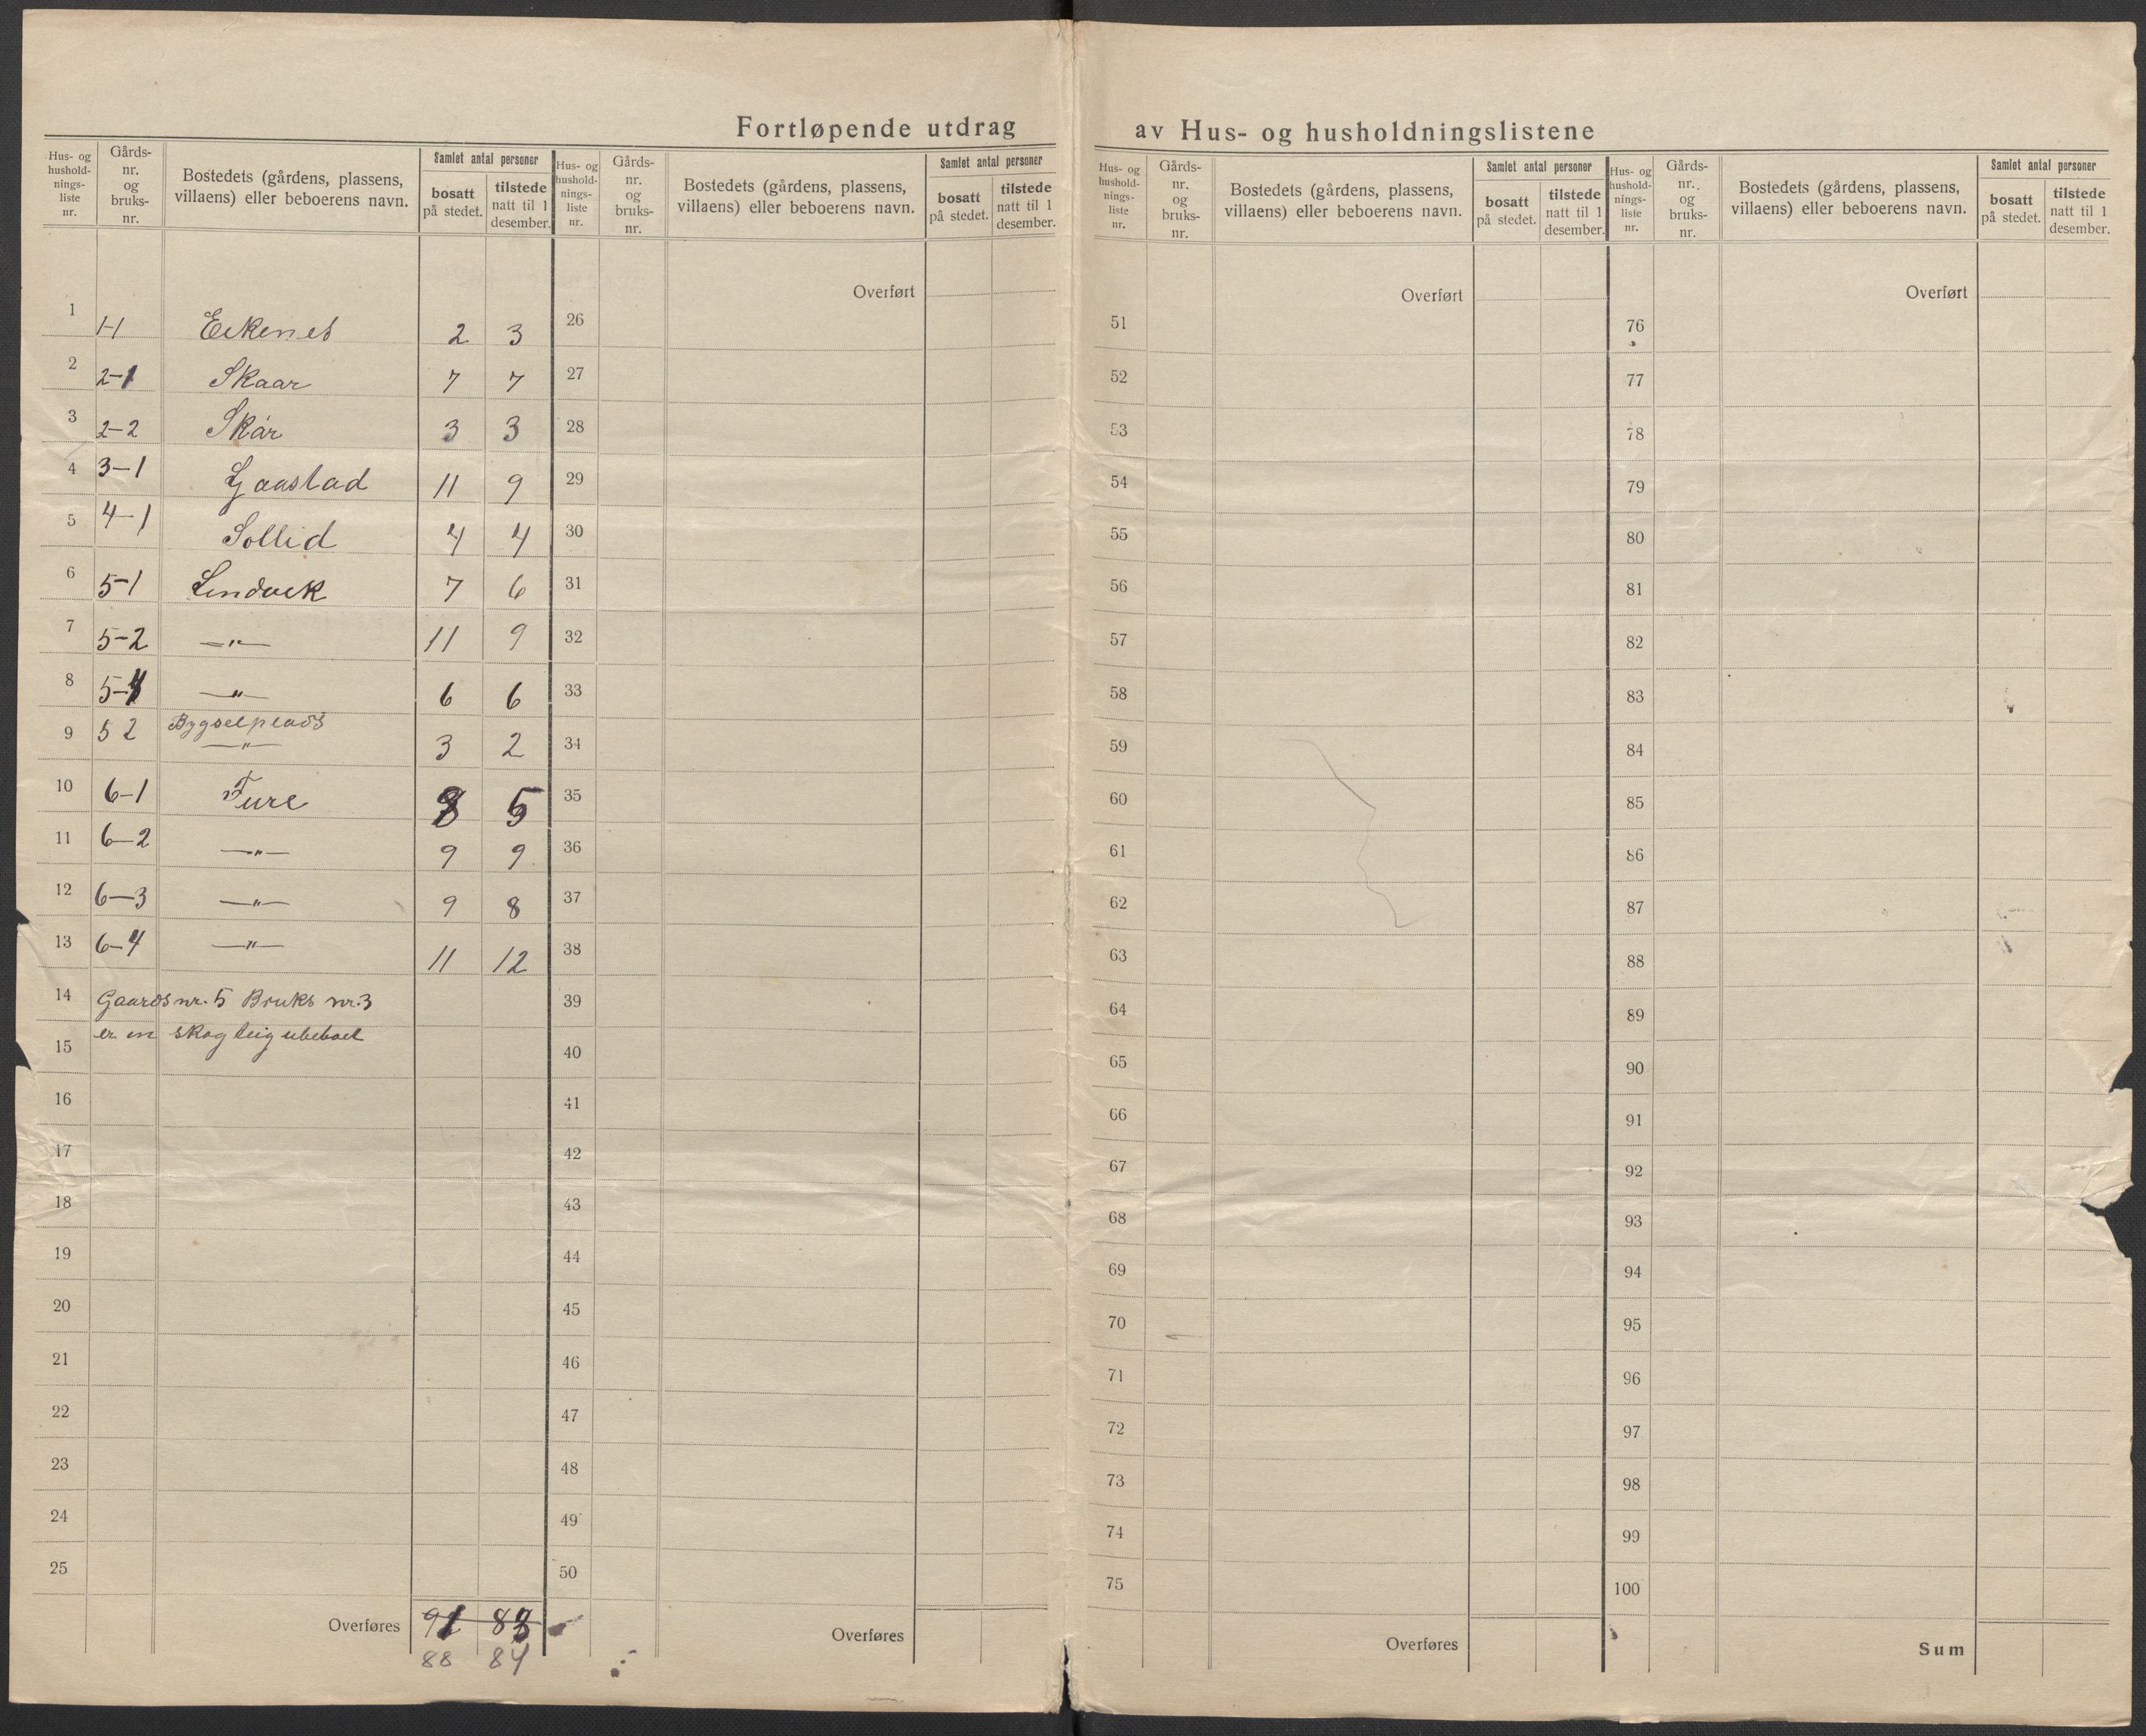 Fortløpende utdrag av Hus- og husholdningslistene
Hus- og hushold- nings- liste nr.
Gårds- nr. og bruks- nr.
Bostedets (gårdens, plassens, villaens) eller beboerens navn.
Samlet antal personer
bosatt på stedet.
tilstede natt til 1 desember.
Hus- og hushold- nings- liste nr.
Gårds- nr. og bruks- nr.
Bostedets (gårdens, plassens, villaens) eller beboerens navn.
Samlet antal personer
bosatt på stedet.
tilstede natt til 1 desember.
Hus- og hushold- nings- liste nr.
Gårds- nr. og bruks- nr.
Bostedets (gårdens, plassens, villaens) eller beboerens navn.
Samlet antal personer
bosatt på stedet.
tilstede natt til 1 desember.
Hus- og hushold- nings- liste nr.
Gårds- nr. og bruks- nr.
Bostedets (gårdens, plassens, villaens) eller beboerens navn.
Samlet antal personer
bosatt på stedet.
tilstede natt til 1 desember.
1 1-1 Eikenes 2 3
2 2-1 Skaar 7 7
3 2-2 Skår 3 3
4 3-1 Gaastad 11 9
5 4-1 Sollid 4 4
6 5-1 Lindvik 7 6
7 5-2 —"— 11 9
8 5-4 —"— 6 6
9 5 2 Bygselplads —"— 3 2
10 6-1 Fure 8 5
11 6-2 —"— 9 9
12 6-3 —"— 9 8
13 6-4 —"— 11 12
14 Gaards nr. 5 Bruks nr. 3
15 er en skog teig ubeboet
16
17
18
19
20
21
22
23
24
25
Overføres
88 84
Overført
26
27
28
29
30
31
32
33
34
35
36
37
38
39
40
41
42
43
44
45
46
47
48
49
50
Overføres
Overført
51
52
53
54
55
56
57
58
59
60
61
62
63
64
65
66
67
68
69
70
71
72
73
74
75
Overføres
Overført
76
77
78
79
80
81
82
83
84
85
86
87
88
89
90
91
92
93
94
95
96
97
98
99
100
Sum